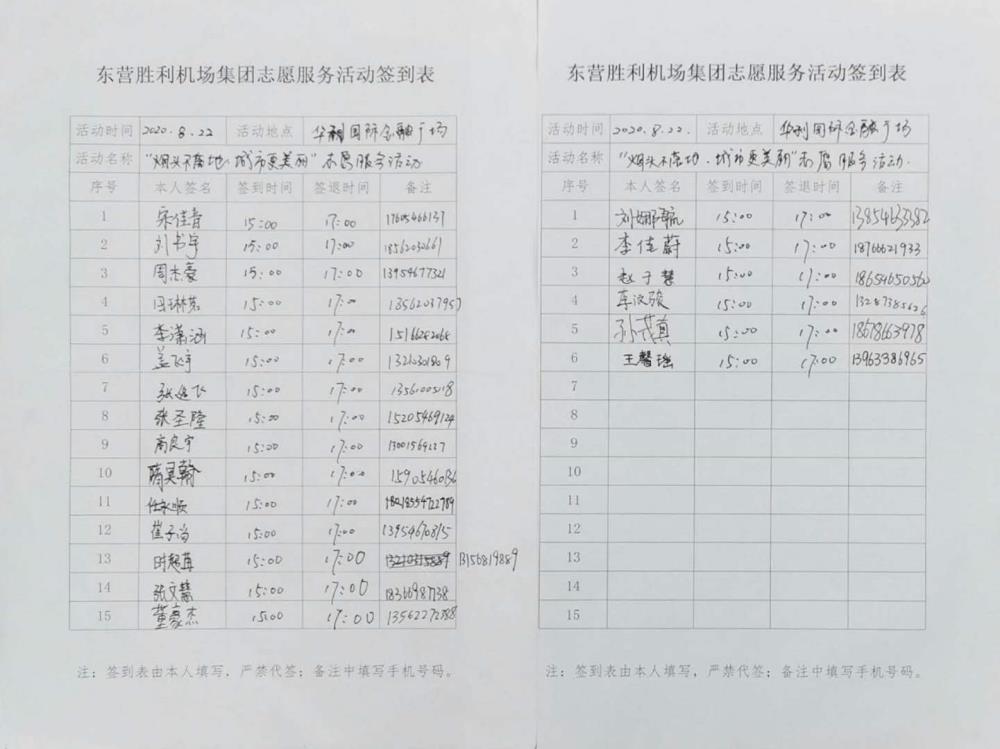 东营胜利机场集团志愿服务活动签到表
活动时间 2020.8.22 活动地点 华利国际金融广场
活动名称 "烟头不落地·城市更美丽"志愿服务活动
序号 本人签名 签到时间 签退时间 备注
1 宋佳音 15:00 17:00 17605466137
2 刘书宇 15:00 17:00
3 周杰豪 15:00 17:00 13954677321
4 15:00 17:00 13562037957
5 李潇涵 15:00 17:00
6 盖飞宇 15:00 17:00
7 15:00 17:00
8 张圣隆 15:00 17:00 15205469124
9 商良宇 15:00 17:00
10 15:00 17:00
11 任永顺 15:00 17:00
12 崔子涵 15:00 17:00 13954670815
13 15:00 17:00 13156819889
14 张文慧 15:00 17:00
15 董豪杰 15:00 17:00 13562272788
注：签到表由本人填写，严禁代签；备注中填写手机号码。
东营胜利机场集团志愿服务活动签到表
活动时间 2020.8.22. 活动地点 华利国际金融广场
活动名称 "烟头不落地·城市更美丽"志愿服务活动.
序号 本人签名 签到时间 签退时间 备注
1 15:00 17:00 13854633382
2 李佳蔚 15:00 17:00 18766621933
3 赵子慧 15:00 17:00 18654650560
4 15:00 17:00 13287385626
5 15:00 17:00 18678663978
6 王馨瑶 15:00 17:00 13963386965
7
8
9
10
11
12
13
14
15
注：签到表由本人填写，严禁代签；备注中填写手机号码。